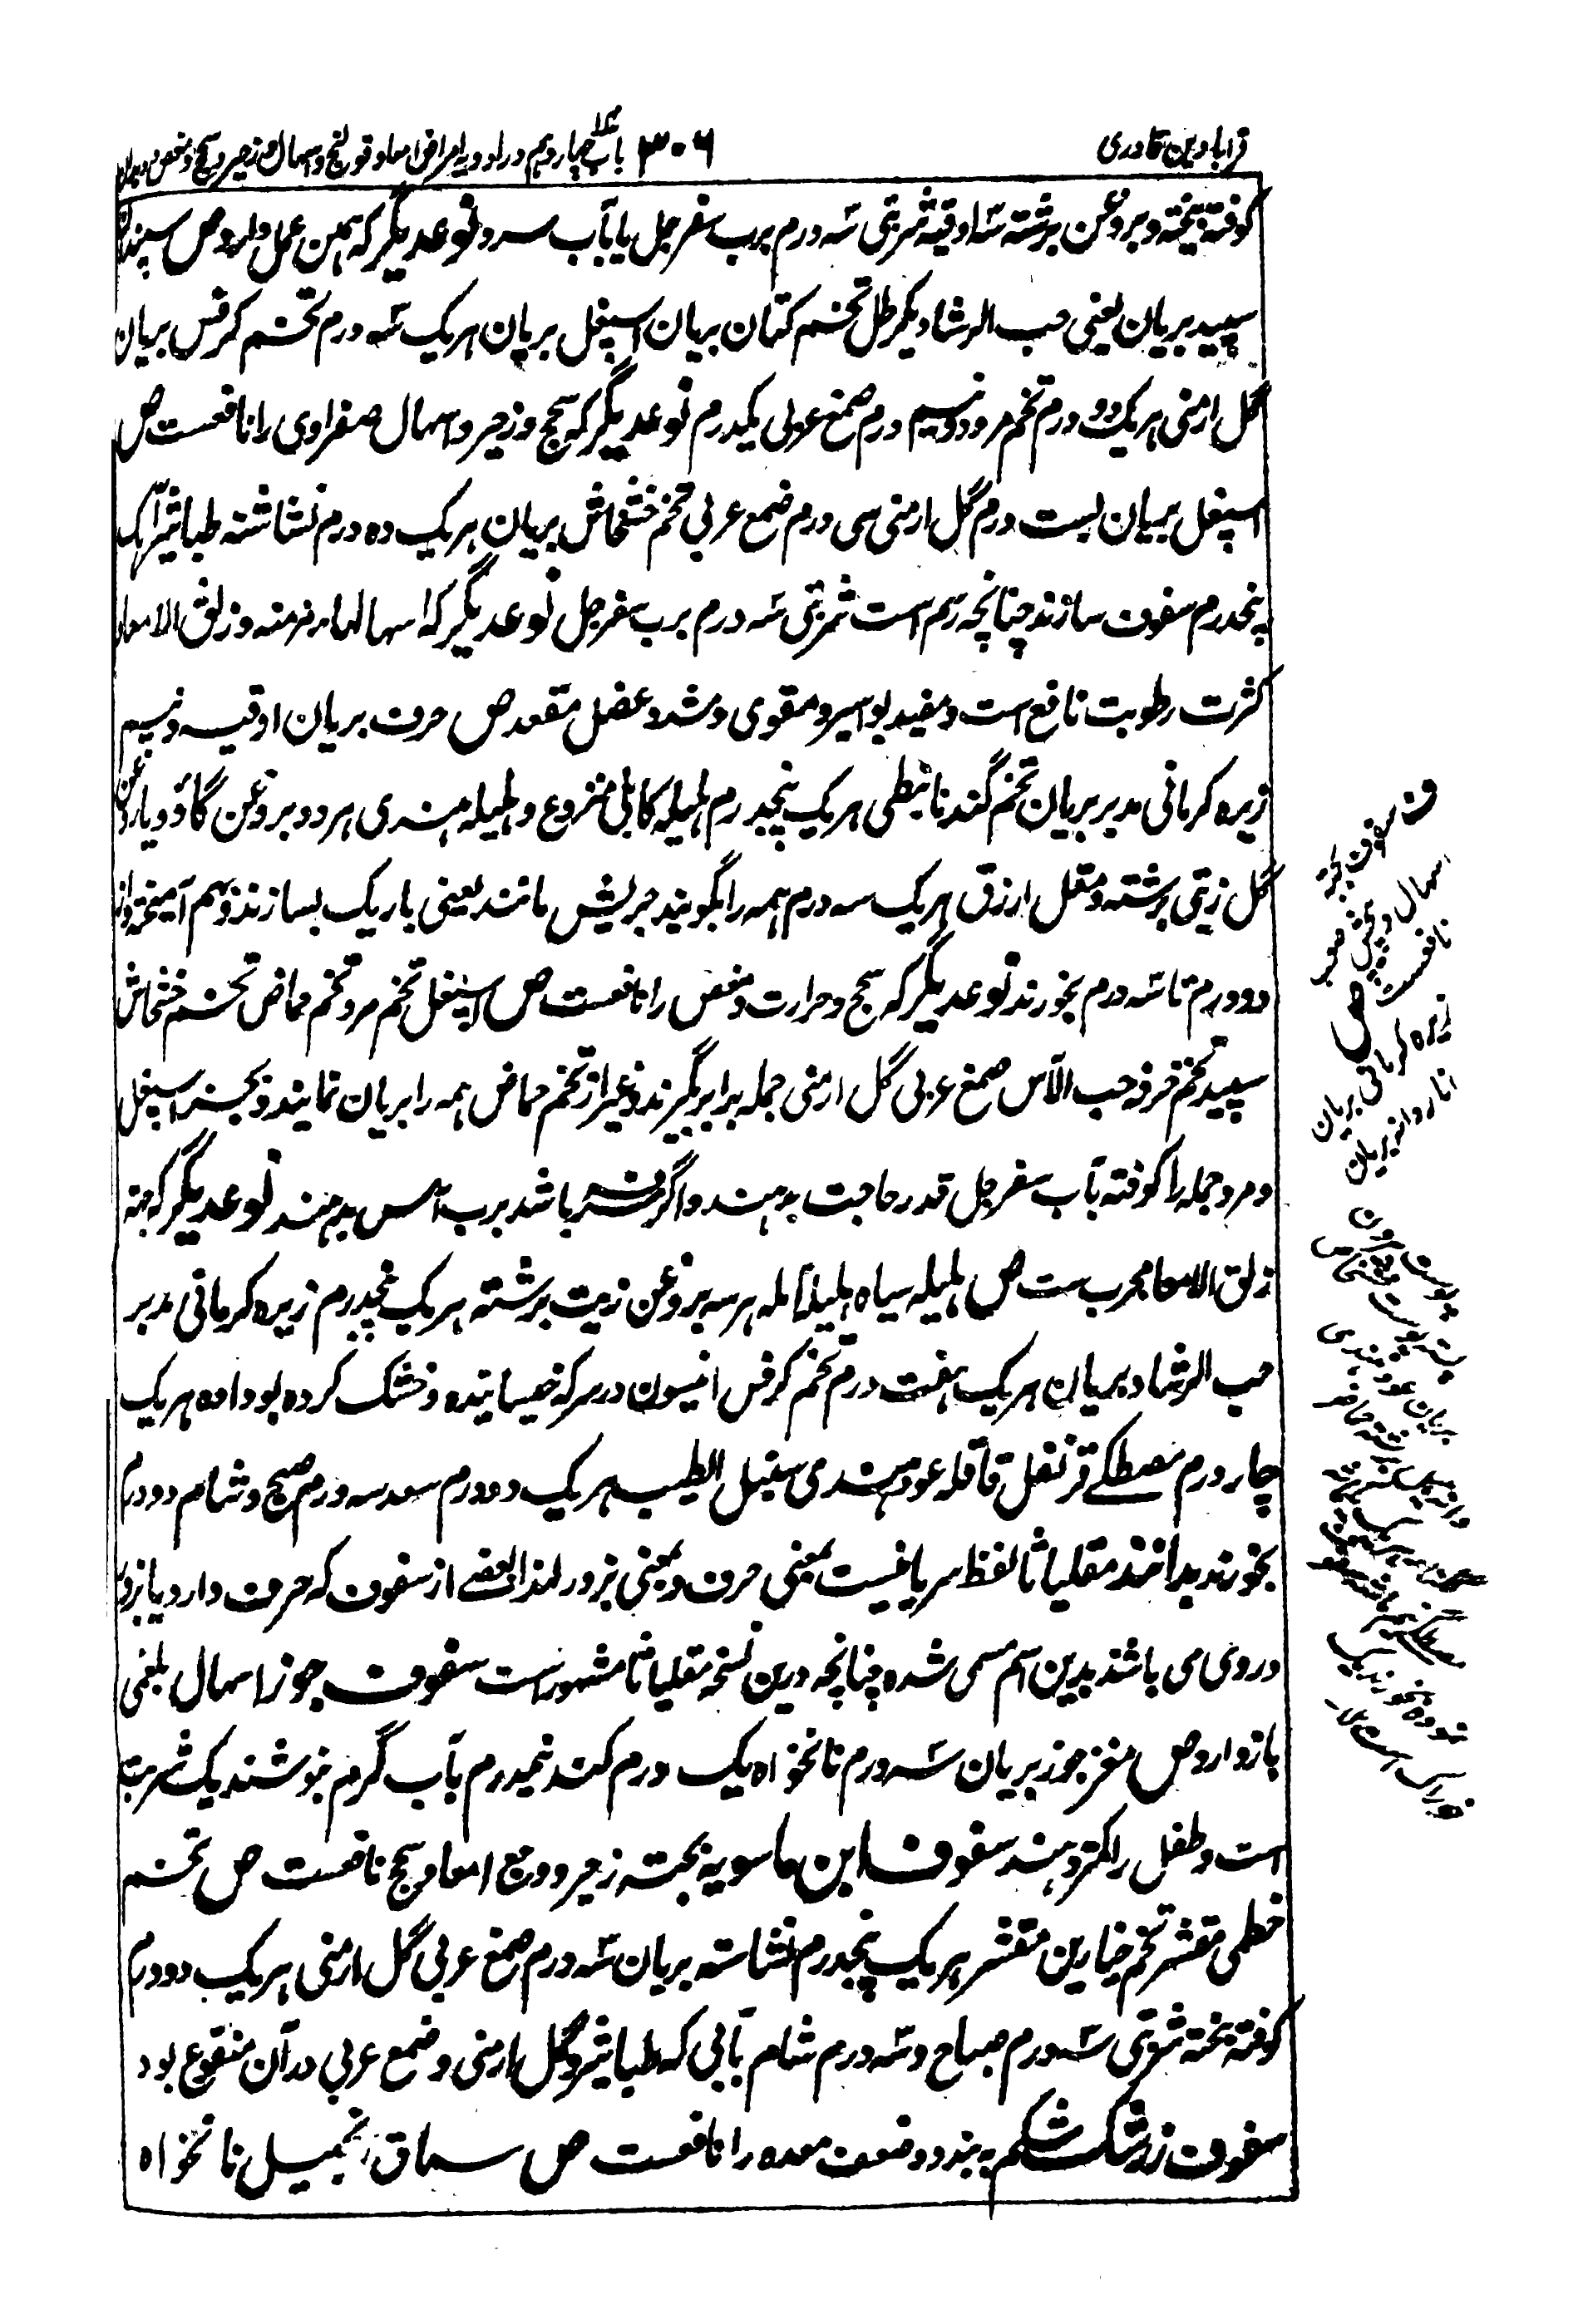 قرابادین قادری
۳۰۶
باب چهاردهم در ادویه امراض امعا و قولنج و اسهال و زحیر و سحج و مغص و دیدان
کوفته بیخته و بروغن برشته سه اوقیه شربتی سه درم برب سفرجل یا بآب سرد نوعدیگر که همین عمل دارد ص سپندان
سپید بریان یعنی حب الرشاد یکرطل تخم کتان بریان اسپغل بریان هریک سه درم تخم کرفس بریان
گل ارمنی هریک دو درم تخم مرو دو نیم درم صمغ عربی یکدرم نوعدیگر که سحج و زحیر و اسهال صفراوی را نافعست ص
اسپغل بریان بست درم گل ارمنی سی درم صمغ عربی تخم خشخاش بریان هریک ده درم نشاشته طباشیر هریک
پنجدرم سفوف سازند چنانچه رسم است شربتی سه درم برب سفرجل نوعدیگر که اسهالهای مزمنه و زلق الامعا و
کثرت رطوبت نافع است و مفید بواسیر و مقوی و مشد عضل مقعد ص حرف بریان اوقیه و نیم
زیره کرمانی مدبر بریان تخم گندنا نبطی هریک پنجدرم هلیله کابلی منزوع و هلیله هندی هر دو بروغن گاؤ و یا روغن
گل زیتی برشته و مقل ازرق هریک سه درم همه را بگویند جریش مانند یعنی باریک بسازند و بهم آمیخته از
دو درم تا سه درم بخورند نوعدیگر که سحج و حرارت و مغص را نافعست ص اسپغل تخم مرو تخم حماض تخم خشخاش
سپید تخم خرفه حب الآس صمغ عربی گل ارمنی جمله برابر بگیرند و غیر از تخم حماض همه را بریان نمایند و بجز اسپغل
و مرو جمله را کوفته بآب سفرجل قدر حاجت بدهند و اگر سرفه باشد برب آس بدهند نوعدیگر که جهته
زلق الامعا مجرب ست ص هلیله سیاه بلیله آمله هر سه بروغن زیت برشته هریک پنجدرم زیره کرمانی مدبر
حب الرشاد بریان هریک هفت درم تخم کرفس انیسون در سرکه خیسانیده و خشک کرده بو داده هریک
چار درم مصطکے قرنفل قاقله عود هندی سنبل الطیب هریک دو درم سعد سه درم صبح و شام دو درم
بخورند بدانند مقلیاثا لفظ سریانیست بمعنی حرف و بمعنی بزور لهذا بعضے از سفوف که حرف دارد یا بزور
در وی می باشند بدین اسم مسمی شده چنانچه درین نسخه مقلیاثا مشهور است سفوف جوز اسهال بلغمی
باز دارد ص مغز جوز بریان سه درم نانخواه یک درم کندر نیمدرم بآب گرم بنوشند یک شربت
است و طفل را کمتر دهند سفوف ابن ماسویه بجهته زحیر و وجع امعا و سحج نافعست ص تخم
خطمی مقشر تخم خیارین مقشر هریک پنجدرم نشاسته بریان سه درم صمغ عربی گل ارمنی هریک دو درم
کوفته بیخته شربتی سه درم صباح و سه درم شام بآبی که طباشیر و گل ارمنی و صمغ عربی در آن منقوع بود
سفوف زرشک شکم به بندد و ضعف معده را نافعست ص سماق زنجبیل نانخواه
ف سفوف بجهته
اسهال و پیچش مجرب
نافعست ص
زیره کرمانی بریان
انار دانه بریان